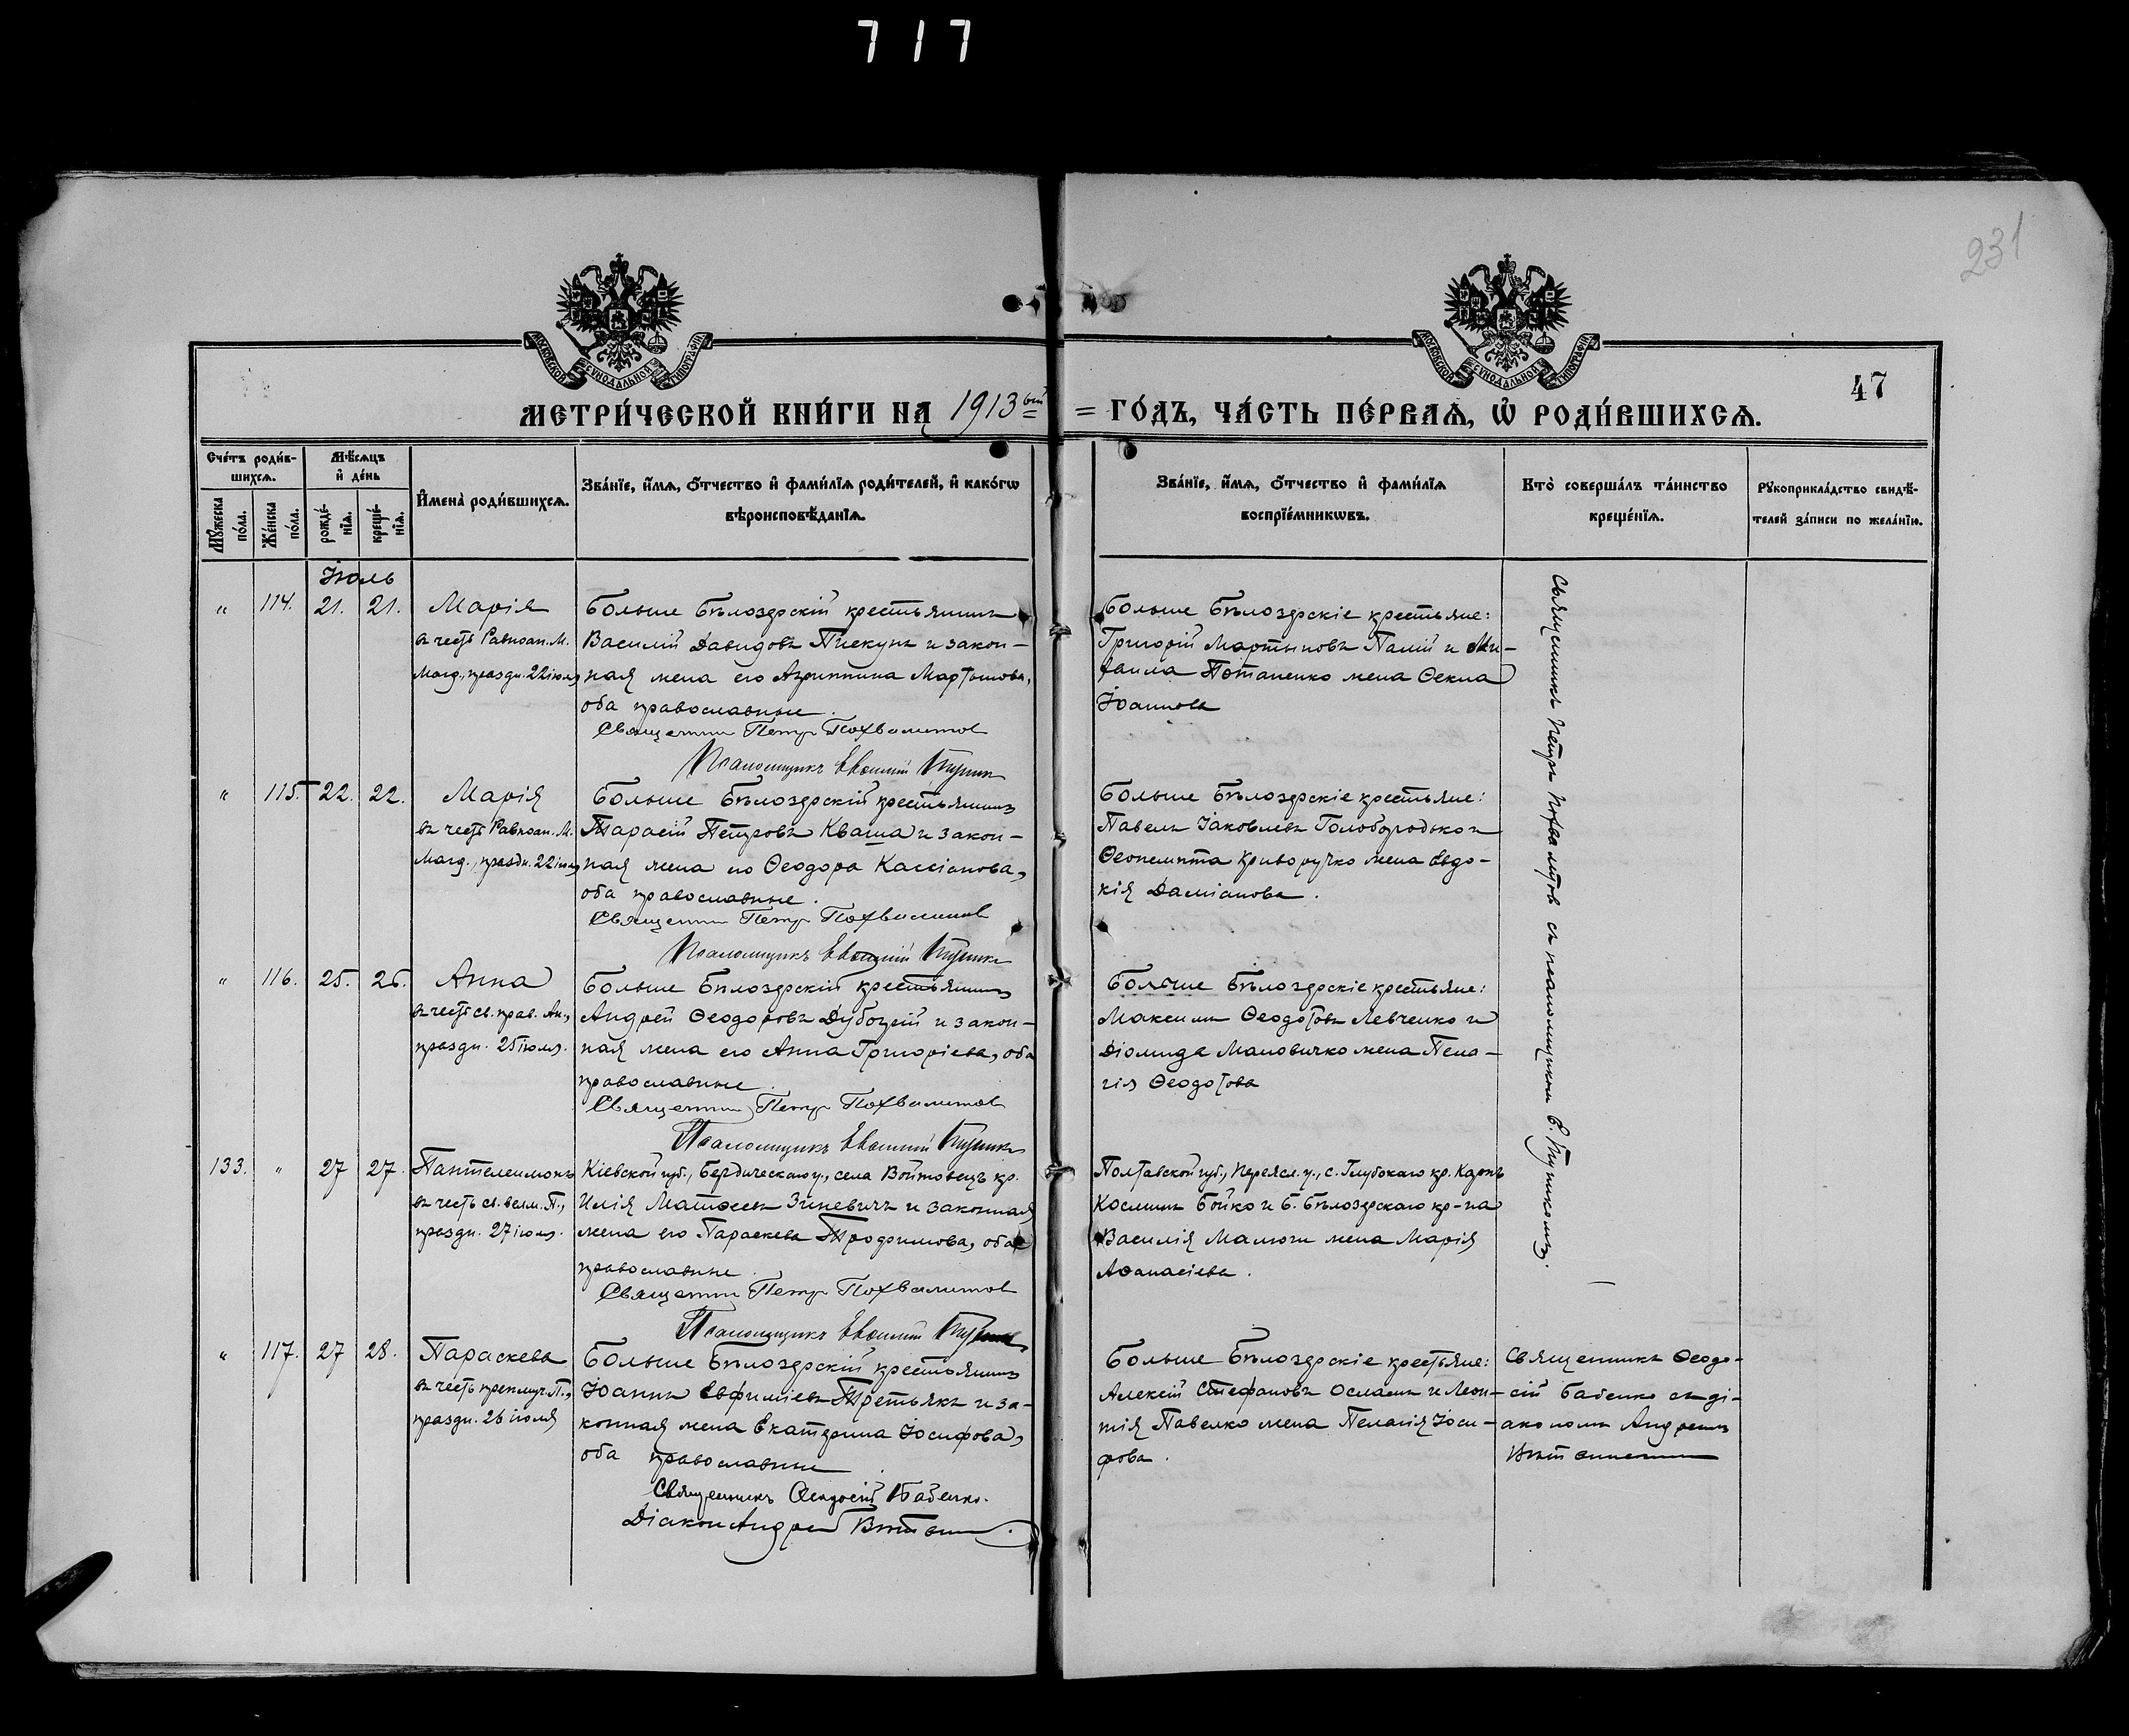 717
231
МОСКОВСКОЙ СѴНОДАЛЬНОЙ ТИПОГРАФІИ
МОСКОВСКОЙ СѴНОДАЛЬНОЙ ТИПОГРАФІИ
47
МЕТРИ́ЧЕСКОЙ КНИ́ГИ НА 1913ый = ГО́ДЪ, ЧА́СТЬ ПЕ́РВАѦ, Ѡ҆ РОДИ́ВШИХСѦ.
Сче́тъ роди́в-
шихсѧ.
Мѣ́сѧцъ
и҆ де́нь
Мꙋ́жеска
по́ла.
Же́нска
по́ла.
рожде́-
нїѧ.
креще́-
нїѧ.
И҆мена̀ роди́вшихсѧ.
Зва́нїе, и҆́мѧ, ѻ҆́тчество и҆ фами́лїѧ роди́телей, и҆ како́гѡ
вѣроисповѣ́данїѧ.
Зва́нїе, и҆́мѧ, ѻ҆́тчество и҆ фами́лїѧ
воспрїе́мникѡвъ.
Кто̀ соверша́лъ та́инство
креще́нїѧ.
Рꙋкоприкла́дство свидѣ́-
телей за́писи по жела́нїю.
Іюль
" 114. 21. 21. Марія
въ честь Равноап. М.
Магд., праздн. 22 іюля
Больше Бѣлозерскій крестьянинъ
Василій Давидовъ Пискунъ и закон-
ная жена его Агриппина Мартынова,
оба православные.
Священник Петр Похвалитов
Псаломщикъ Евѳимій
Больше Бѣлозерскіе крестьяне:
Григорій Мартыновъ Палій и Ми-
хаила Потапенко жена Ѳекла
Іоаннова
Священникъ Петръ Похвалитов съ псаломщикомъ Е.
" 115. 22. 22. Марія
въ честь Равноап. М.
Магд., праздн. 22 іюля
Больше Бѣлозерскій крестьянинъ
Тарасій Петровъ Кваша и закон-
ная жена его Ѳеодора Кассіанова,
оба православные.
Священник Петр Похвалитов
Псаломщикъ Евѳимій
Больше Бѣлозерскіе крестьяне:
Павелъ Іаковлевъ Голобородько и
Ѳеопемпта Криворучко жена Евдо-
кія Даміанова.
" 116. 25. 26. Анна
въ честь св. прав. Ан.,
праздн. 25 іюля.
Больше Бѣлозерскій крестьянинъ
Андрей Ѳеодоровъ и закон-
ная жена его Анна Григоріева, оба
православные.
Священник Петр Похвалитов
Псаломщикъ Евѳимій
Больше Бѣлозерскіе крестьяне:
Максимъ Ѳеодотовъ Левченко и
Діомида Маловичко жена Пела-
гія Ѳеодотова
133. " 27 27. Пантелеимонъ
въ честь св. велм. П.,
праздн. 27 іюля.
Кіевской губ., Бердическаго у., села Войтовецъ кр.
Илія Матѳеевъ Зиневичъ и законная
жена его Параскева Трофимова, оба
православные.
Священник Петр Похвалитов
Псаломщикъ Евѳимій
Полтавской губ., Переясл. у., с. Глубокаго кр. Карпъ
Космин Бойко и Б. Бѣлозерскаго кр-на
Василія Малюги жена Марія
Аѳанасіева.
" 117. 27 28. Параскева
въ честь препмуч. П.,
праздн. 26 іюля
Больше Бѣлозерскій крестьянинъ
Іоаннъ Евфиміевъ Третьякъ и за-
конная жена Екатерина Іосифова,
оба православные.
Священникъ Ѳеодосій Бабенко.
Діакон Андрей
Больше Бѣлозерскіе крестьяне:
Алексій Стефановъ Ослаенъ и Леон-
тія Павелко жена Пелагія Іоси-
фова.
Священникъ Ѳеодо-
сій Бабенко съ ді-
акономъ Андреемъ